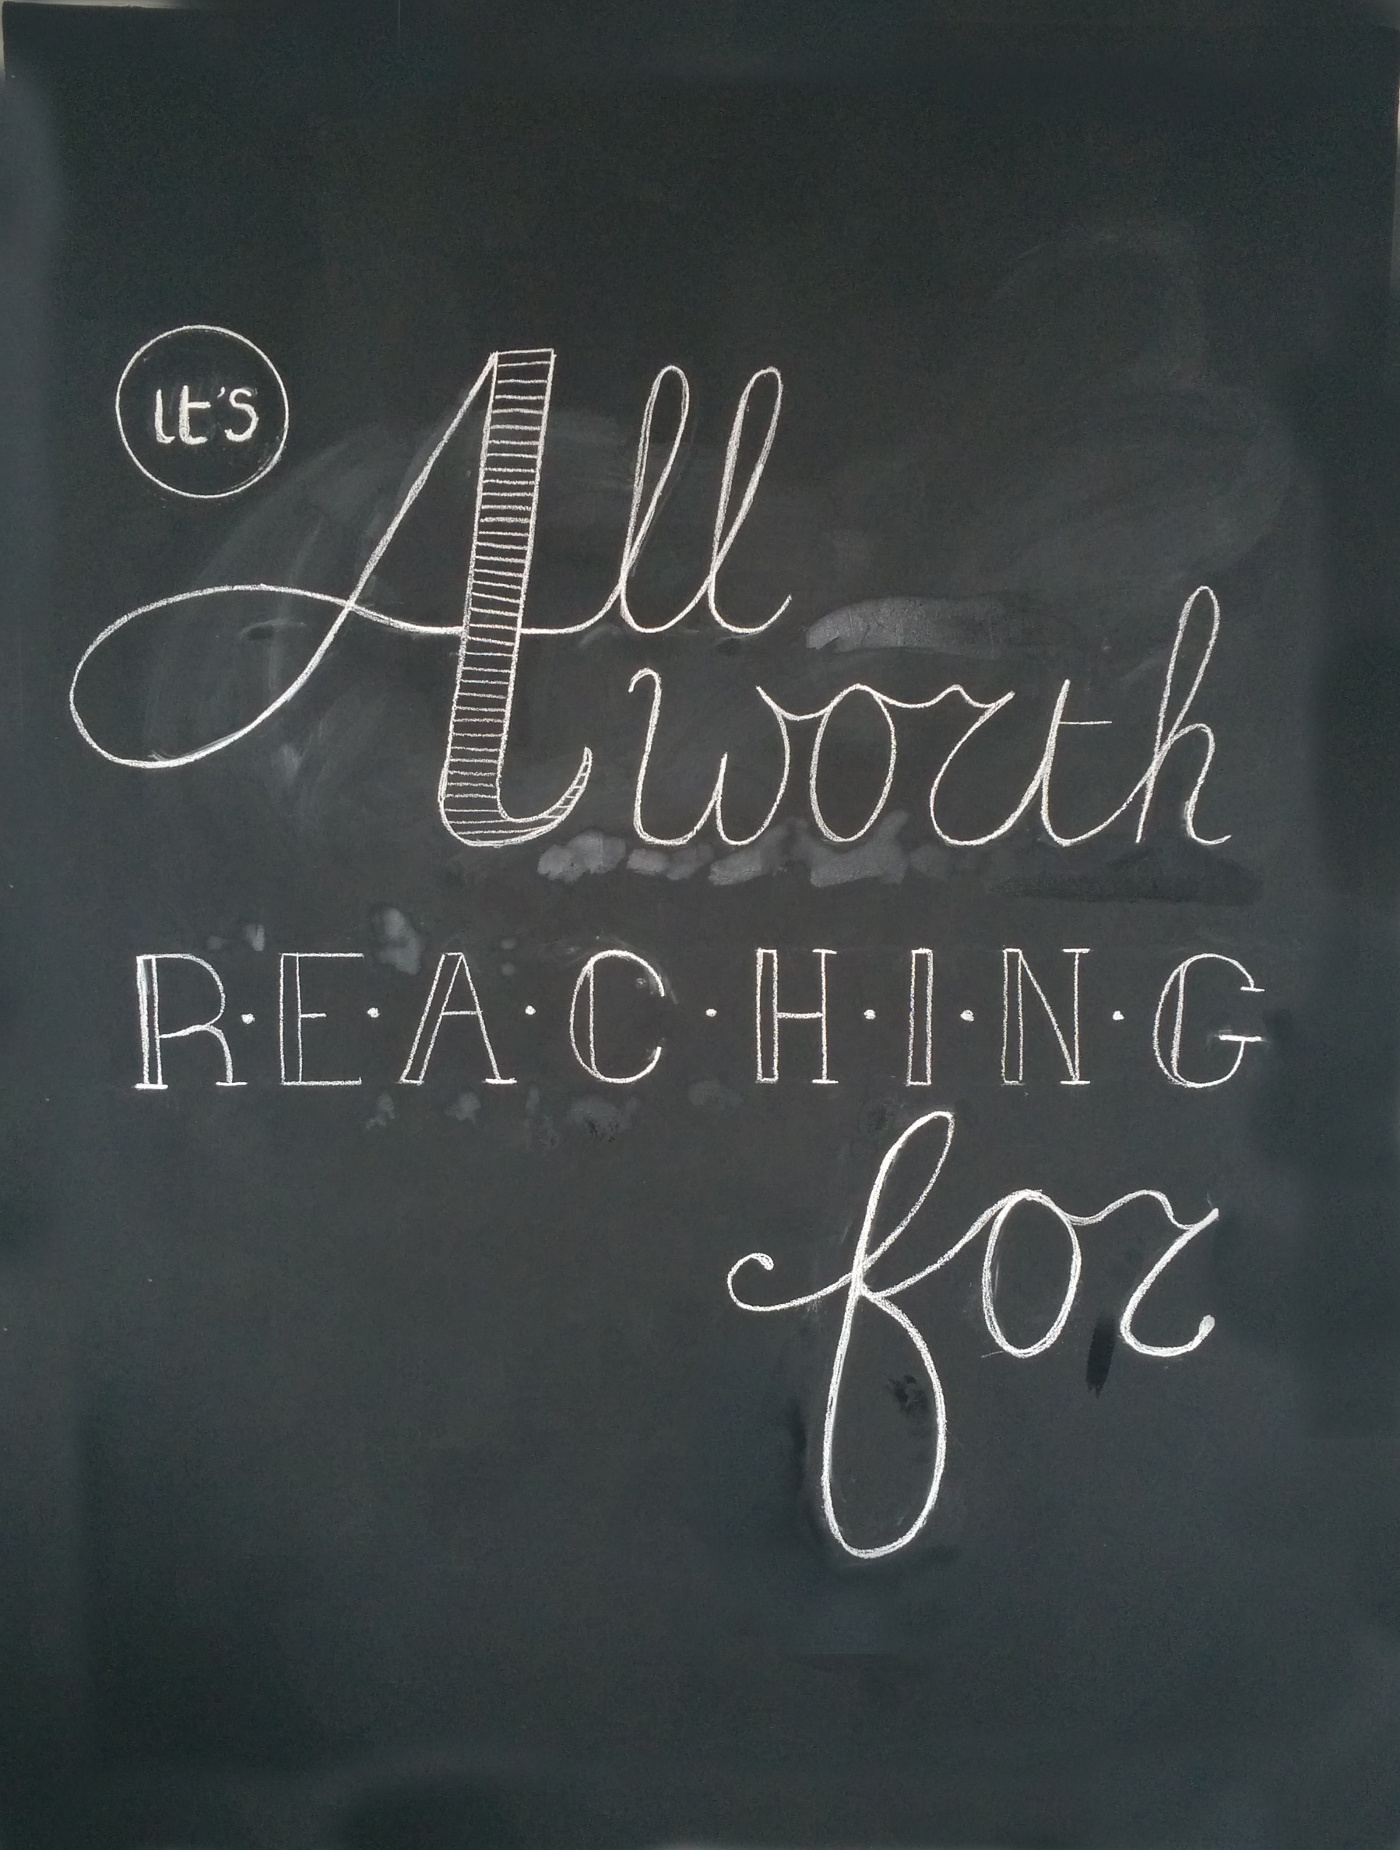 It's
All
worth
R·E·A·C·H·I·N·G
for